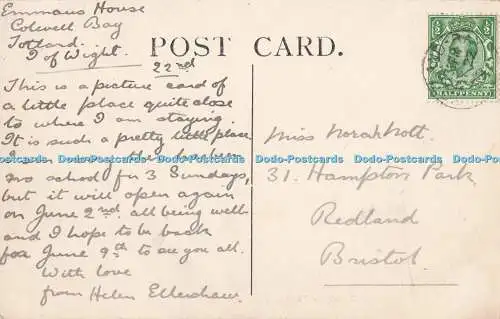 Emmaus House
Colwell Bay
Totland
I of Wight.
22nd
POST CARD.
HALFPENNY
This is a picture card of
a little place quite close
to where I am staying.
It is such a pretty little place
no school for 3 Sundays,
but it will open again
on June 2nd. all being well-
and I hope to be back
for June 9th to see you all.
With love
from Helen
Miss Norah Nott
31. Hampton Park
Redland
Bristol
Dodo-Postcards Dodo-Postcards Dodo-Postcards Dodo-Postcards Dodo-Postcards